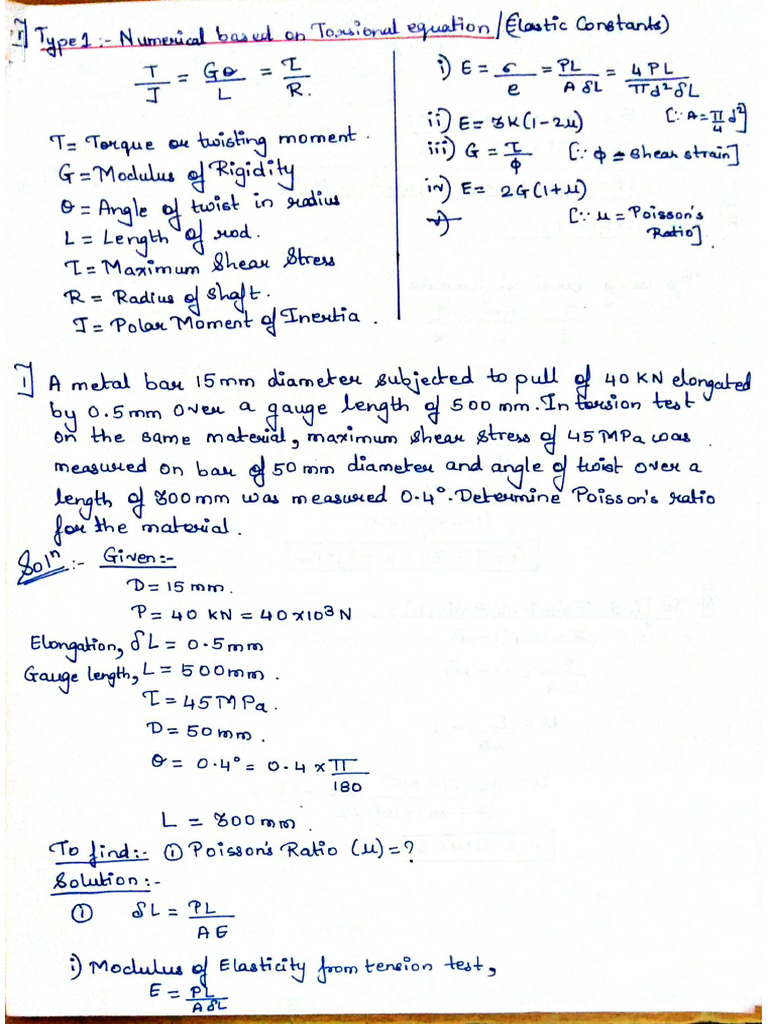 1] Type 1 :- Numerical based on Torsional equation / (Elastic Constants)
T/J = Gθ/L = τ/R.
T = Torque or twisting moment.
G = Modulus of Rigidity
θ = Angle of twist in radius
L = Length of rod.
τ = Maximum Shear Stress
R = Radius of shaft.
J = Polar Moment of Inertia.
i) E = σ/e = PL/A δL = 4PL/πd²δL
ii) E = 3K(1-2μ) [∵ A = π/4 d²]
iii) G = τ/φ [∵ φ = shear strain]
iv) E = 2G(1+μ) [∵ μ = Poisson's
Ratio].
1] A metal bar 15mm diameter subjected to pull of 40 KN elongated
by 0.5mm over a gauge length of 500 mm. In torsion test
on the same material, maximum shear stress of 45 MPa was
measured on bar of 50 mm diameter and angle of twist over a
length of 300mm was measured 0.4°. Determine Poisson's ratio
for the material.
Solⁿ :- Given :-
D = 15 mm.
P = 40 KN = 40×10³ N
Elongation, δL = 0.5mm
Gauge length, L = 500mm.
τ = 45 MPa.
D = 50mm.
θ = 0.4° = 0.4 × π/180
L = 300mm.
To find :- ① Poisson's Ratio (μ) = ?
Solution :-
① δL = PL/AE
i) Modulus of Elasticity from tension test,
E = PL/AδL